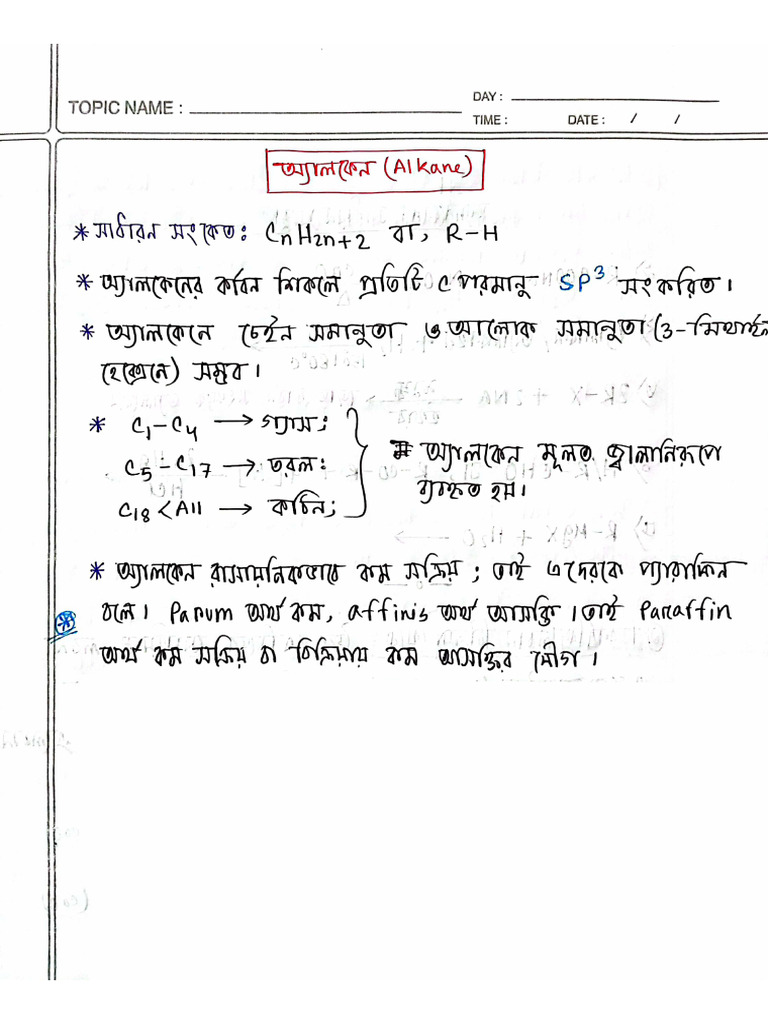 TOPIC NAME :
DAY :
TIME : DATE : / /
অ্যালকেন (Alkane)
* সাধারন সংকেত: CnH2n+2 বা, R-H
* অ্যালকেনের কার্বন শিকলে প্রতিটি C পরমানু SP³ সংকরিত।
* অ্যালকেনে চেইন সমানুতা ও আলোক সমানুতা (3-মিথাইল
হেক্সেনে) সম্ভব।
* C₁-C₄ → গ্যাস;
C₅-C₁₇ → তরল:
C₁₈<All → কঠিন;
# অ্যালকেন মূলত জ্বালানিরূপে
ব্যবহৃত হয়।
* অ্যালকেন রাসায়নিকভাবে কম সক্রিয়; তাই এদেরকে প্যারাফিন
বলে। Parum অর্থ কম, affinis অর্থ আসক্তি। তাই Paraffin
অর্থ কম সক্রিয় বা বিক্রিয়ায় কম আসক্তির যৌগ।